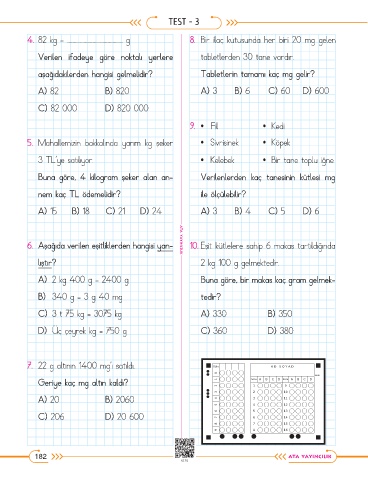 TEST - 3
4. 82 kg = .................... g
Verilen ifadeye göre noktalı yerlere
aşağıdakilerden hangisi gelmelidir?
A) 82 B) 820
C) 82 000 D) 820 000
5. Mahallemizin bakkalında yarım kg şeker
3 TL'ye satılıyor.
Buna göre, 4 kilogram şeker alan an-
nem kaç TL ödemelidir?
A) 15 B) 18 C) 21 D) 24
6. Aşağıda verilen eşitliklerden hangisi yan-
lıştır?
A) 2 kg 400 g = 2400 g
B) 340 g = 3 g 40 mg
C) 3 t 75 kg = 3075 kg
D) Üç çeyrek kg = 750 g
7. 22 g altının 1400 mg'ı satıldı.
Geriye kaç mg altın kaldı?
A) 20 B) 2060
C) 206 D) 20 600
8. Bir ilaç kutusunda her biri 20 mg gelen
tabletlerden 30 tane vardır.
Tabletlerin tamamı kaç mg gelir?
A) 3 B) 6 C) 60 D) 600
9. • Fil • Kedi
• Sivrisinek • Köpek
• Kelebek • Bir tane toplu iğne
Verilenlerden kaç tanesinin kütlesi mg
ile ölçülebilir?
A) 3 B) 4 C) 5 D) 6
10. Eşit kütlelere sahip 6 makas tartıldığında
2 kg 100 g gelmektedir.
Buna göre, bir makas kaç gram gelmek-
tedir?
A) 330 B) 350
C) 360 D) 380
AD SOYAD
182
ATA YAYINCILIK